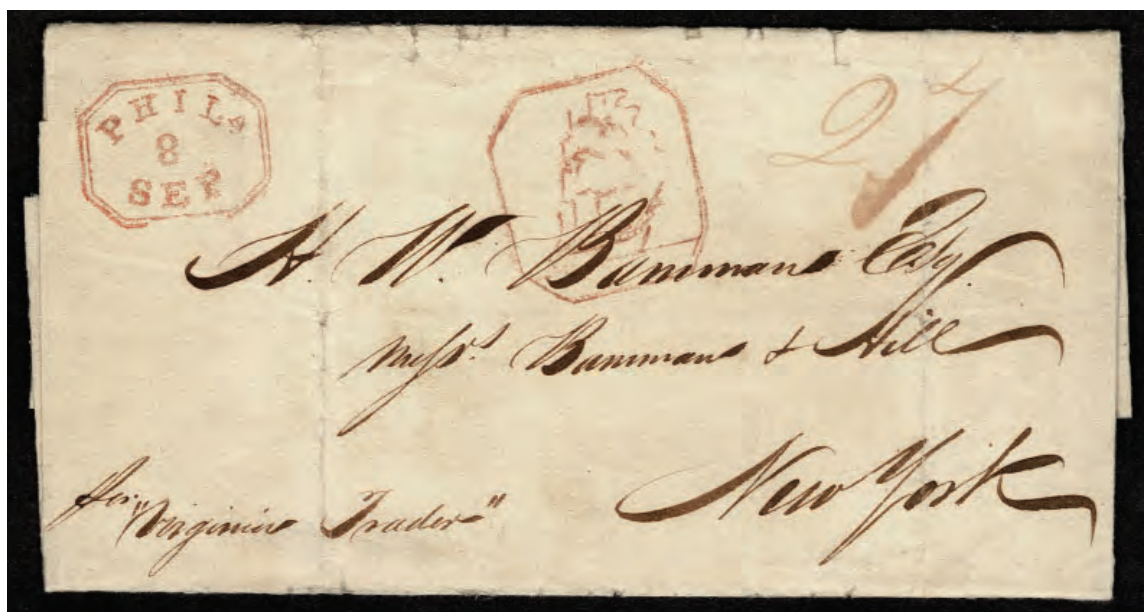 PHILA
8
SEP
27
H. W. Bammans Esq
Messrs Bammans & Hill
New York
per "Virginia Trader"